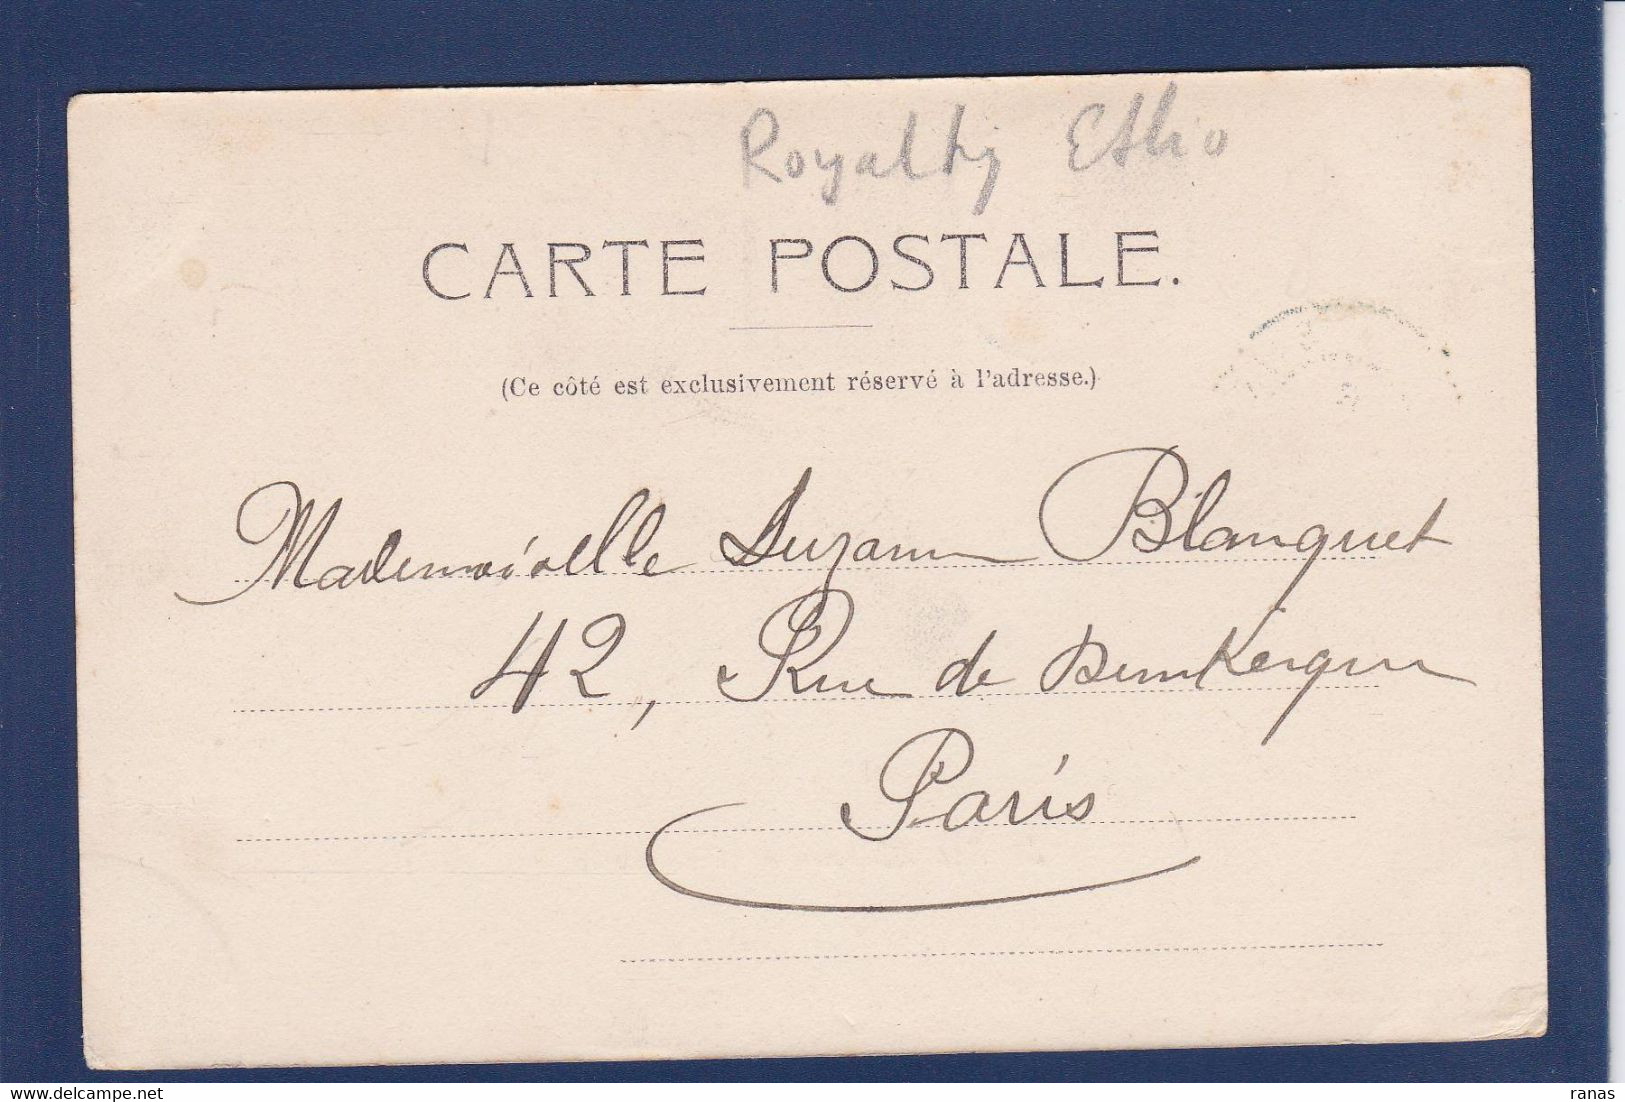 Royalty Ethio
CARTE POSTALE.
(Ce côté est exclusivement réservé à l'adresse.)
Mademoiselle Suzanne Blanquet
42, Rue de Dunkerque
Paris
ranas